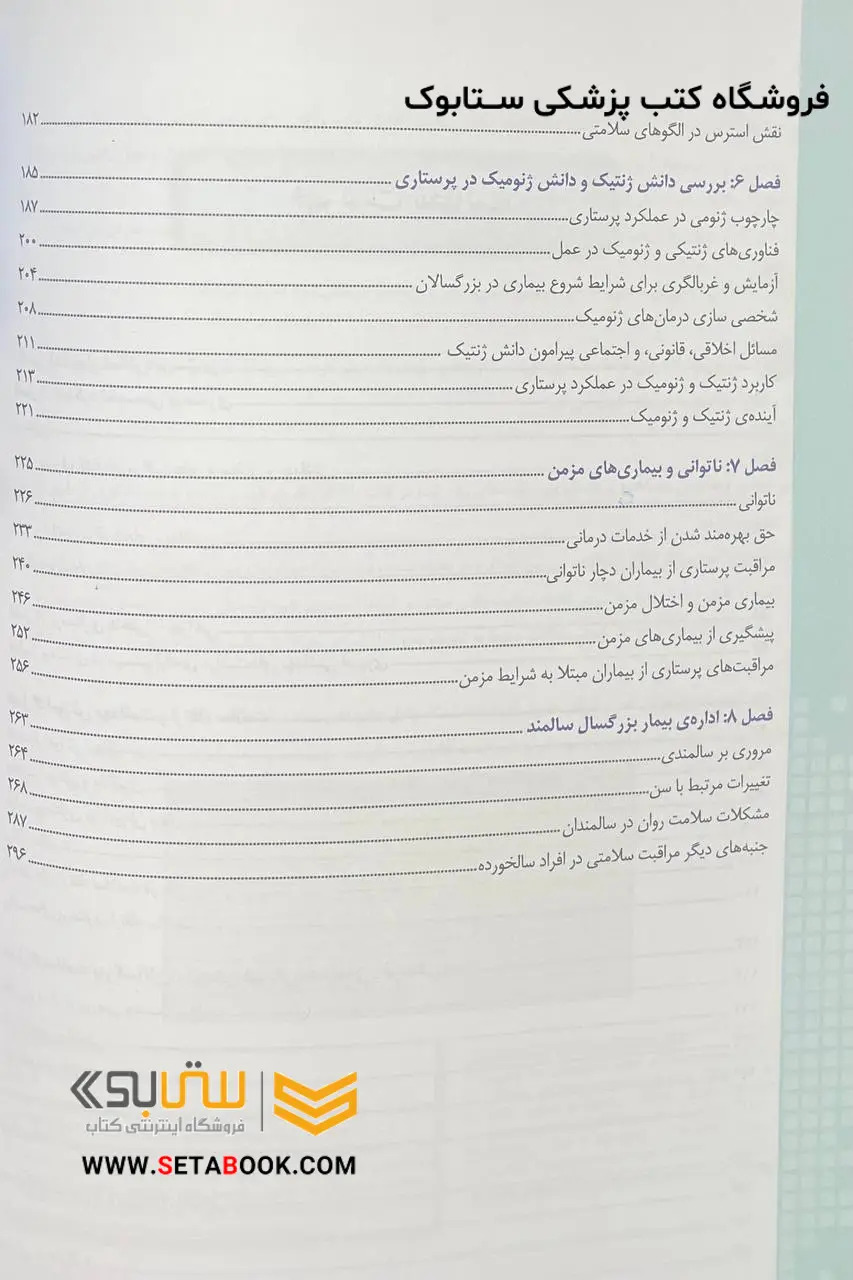 فروشگاه کتب پزشکی ستابوک
نقش استرس در الگوهای سلامتی ۱۸۲
فصل ۶: بررسی دانش ژنتیک و دانش ژنومیک در پرستاری ۱۸۵
چارچوب ژنومی در عملکرد پرستاری ۱۸۷
فناوری‌های ژنتیکی و ژنومیک در عمل ۲۰۰
آزمایش و غربالگری برای شرایط شروع بیماری در بزرگسالان ۲۰۴
شخصی سازی درمان‌های ژنومیک ۲۰۸
مسائل اخلاقی، قانونی، و اجتماعی پیرامون دانش ژنتیک ۲۱۱
کاربرد ژنتیک و ژنومیک در عملکرد پرستاری ۲۱۳
آینده‌ی ژنتیک و ژنومیک ۲۲۱
فصل ۷: ناتوانی و بیماری‌های مزمن ۲۲۵
ناتوانی ۲۲۶
حق بهره‌مند شدن از خدمات درمانی ۲۳۳
مراقبت پرستاری از بیماران دچار ناتوانی ۲۴۰
بیماری مزمن و اختلال مزمن ۲۴۶
پیشگیری از بیماری‌های مزمن ۲۵۲
مراقبت‌های پرستاری از بیماران مبتلا به شرایط مزمن ۲۵۶
فصل ۸: اداره‌ی بیمار بزرگسال سالمند ۲۶۳
مروری بر سالمندی ۲۶۴
تغییرات مرتبط با سن ۲۶۸
مشکلات سلامت روان در سالمندان ۲۸۷
جنبه‌های دیگر مراقبت سلامتی در افراد سالخورده ۲۹۶
ستابوک
فروشگاه اینترنتی کتاب
WWW.SETABOOK.COM